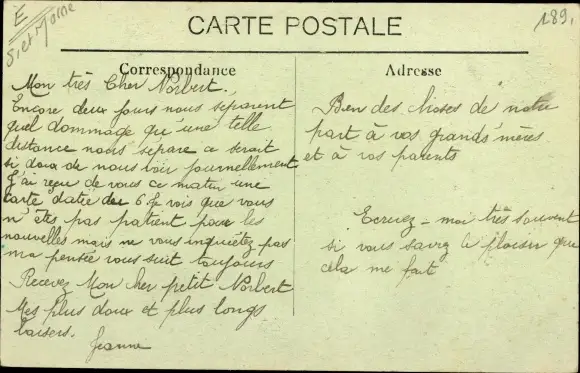 E
S. et Marne
189.
CARTE POSTALE
Correspondance
Mon très Cher Norbert.
Encore deux jours nous séparent
quel dommage qu'une telle
distance nous sépare ce serait
si doux de nous voir journellement
J'ai reçu de vous ce matin une
carte datée du 6 je vois que vous
n'êtes pas patient pour les
nouvelles mais ne vous inquiétez pas
ma pensée vous suit toujours
Recevez Mon cher petit Norbert
Mes plus doux et plus longs
baisers.
Jeanne
Adresse
Bien des choses de notre
part à vos grands'mères
et à vos parents
Ecrivez-moi très souvent
si vous savez le plaisir que
cela me fait